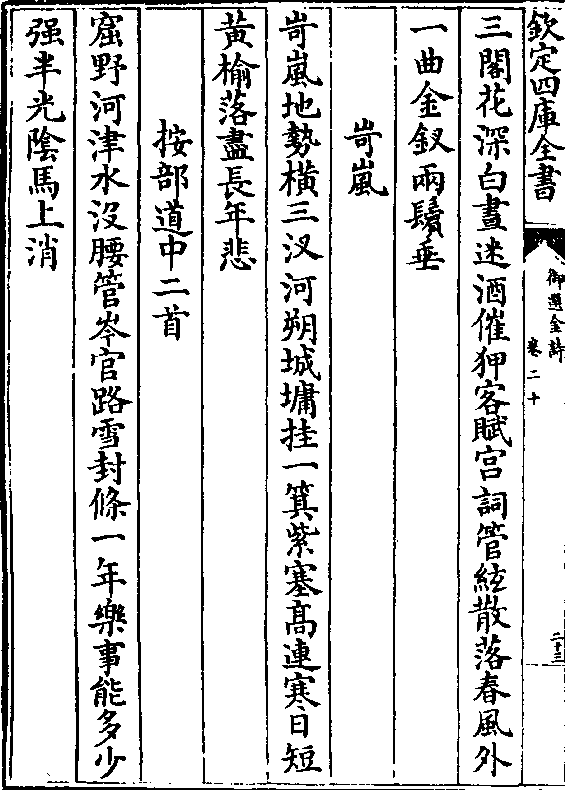 欽定四庫全書
御選金詩
卷二十
二十三
三閣花深白晝迷酒催狎客賦宫詞管絃散落春風外
一曲金釵兩鬢垂
岢嵐
岢嵐地勢橫三汊河朔城墉挂一箕紫塞高連寒日短
黃榆落盡長年悲
按部道中二首
窟野河津水沒腰管岑官路雪封條一年樂事能多少
强半光陰馬上消